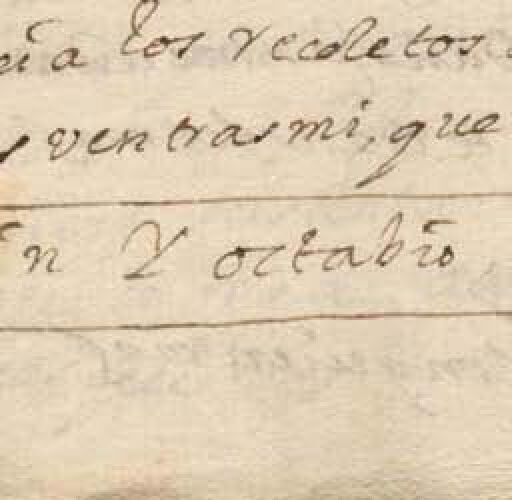 a los recoletos
ventras mi, que
n Y octabio